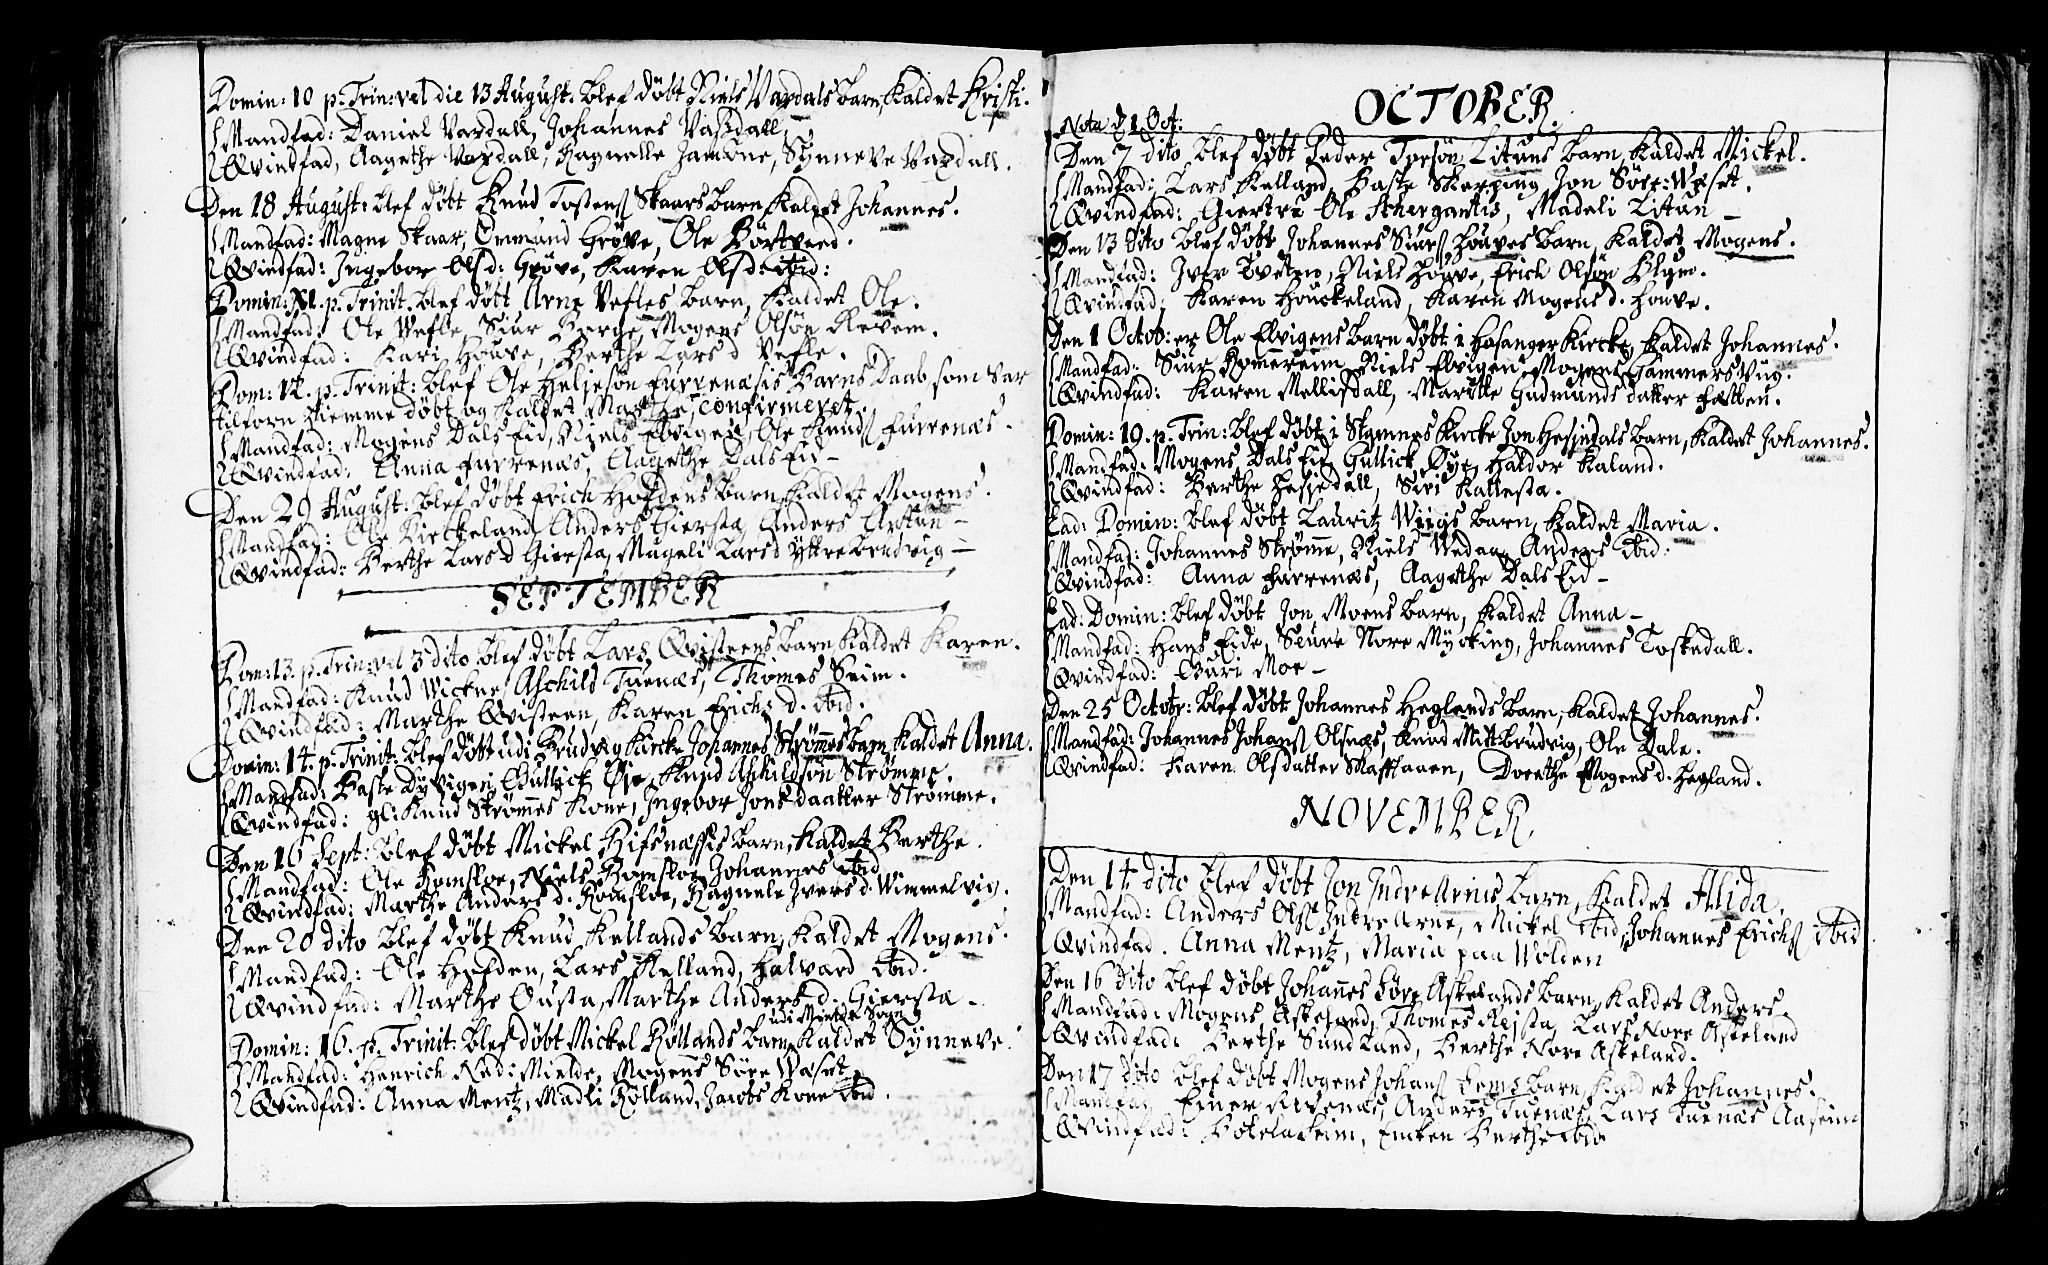 Domin: 10 p. Trin: vel die 13 August. blef døbt Niels Vaxdals barn, kaldet Kristi.
Mandfad: Daniel Vaxdall, Johannes Vaxdall,
Qvindfad, Aagethe Vaxdall, Ragnelle Jamone, Synneve Vaxdall.
Den 18 August: blef døbt Knud Tostens Skaars barn kaldet Johannes.
Mandfad: Magne Skaar, Emmund Gröve, Ole Børtveed.
Qvindfad: Ingebor Olsd: Gröve, Karen Olsd: ibid:
Domin: XI. p. Trinit. blef døbt Arne Vefles barn, kaldet Ole.
Mandfad: Ole Vefle, Siur Berge, Mogens Olsøn Revem.
Qvindfad: Kari Houve, Berthe Lars d Vefle.
Dom: 12. p. Trinit: blef Ole Heljesøn Furrenæsis Barns Daab, som var
tilforn hiemme døbt og kaldet Marthe, confirmeret.
Mandfad: Mogens Dals Eid, Niels Elvigen, Ole Knuds Furrenæs.
Qvindfad: Anna Furrenæs, Aagethe Dals Eid –
Den 29 August: blef døbt Erich Hofdens barn kaldet Mogens.
Mandfad: Ole Kirckeland, Anders Giersta, Anders Arttun –
Qvindfad: Berthe Lars d Giersta, Mageli Lars d Yttre Brudvig –
SEPTEMBER
Dom: 13. p. Trin: vel 3 dito blef døbt Lars Qvisteens barn kaldet Karen.
Mandfad: Knud Wickne, Aschild Tuenæs, Thomes Seim.
Qvindfad: Marthe Qvisteen, Karen Erichs d. ibid.
Domin: 14. p. Trinit: blef døbt udi Brudvig Kircke Johannes Strømmes barn kaldet Anna.
Mandfad: Baste Dyvigen, Gullick Øie, Knud Aschildsøn Strømme.
Qvindfad: gl: Knud Strømmes Kone, Ingebor Jons daatter Strømme.
Den 16 Sept: blef døbt Mickel Rifsnæssis barn, kaldet Berthe.
Mandfad: Ole Romsloe, Niels Romsloe, Johannes ibid
Qvindfad: Marthe Anders d. Romsloe, Ragnele Ivers d. Wimmelvig.
Den 20 dito blef døbt Knud Kellands barn, kaldet Mogens.
Mandfad: Ole Hofden, Lars Kelland, Halvard ibid.
Qvindfad: Marthe Ousta, Marthe Anders d. Giersta –
udi Mielde Sogn
Domin: 16. p. Trinit: blef døbt Mickel Röllands barn, kaldet Synneve.
Mandfad: Henrich Ned: Mielde, Mogens Søre Waset,
Qvindfad: Anna Mentz, Madli Rölland, Jacobs Kone ibid.
OCTOBER.
Nota d 1 Oct:
Den 7 dito blef døbt Peder Torsøn Lituns barn, kaldet Mickel.
Mandfad: Lars Kelland, Baste Skerping, Jon Søre: Waset.
Qvindfad: Giertru Ole Athergantis, Madeli Litun –
Den 13 dito blef døbt Johannes Siurs Houves barn, kaldet Mogens.
Mandfad: Iver Tveten, Niels Houve, Erich Olsøn
Qvindfad: Karen Houckeland, Karen Mogens d. Houve.
Den 1 Octob: er Ole Elvigens barn døbt i Hosanger Kircke, kaldet Johannes.
Mandfad: Siur Romereim, Niels Elvigen, Mogens Gammersvig.
Qvindfad: Karen Mellisdall, Maritte Gudmunds datter
Domin: 19. p. Trin: blef døbt i Stamnes Kircke Jon Hesjedals barn, kaldet Johannes.
Mandfad: Mogens Dals Eid, Gullick Øye, Haldor Kaland.
Qvindfad: Berthe Hesjedall, Siri Kallesta.
Ead: Domin: blef døbt Lauritz Wiigs barn, kaldet Maria.
Mandfad: Johannes Strømme, Niels Wedaa, Anders ibid.
Qvindfad: Anna Furrenæs, Aagethe Dals Eid –
Ead: Domin: blef døbt Jon Moens barn, kaldet Anna –
Mandfad: Hans Eide, Siure Nore Mycking, Johannes Toskedall.
Qvindfad: Guri Moe –
Den 25 Octobr: blef døbt Johannes Heglands barn, kaldet Johannes.
Mandfad: Johannes Johans Olsnæs, Knud Mitbrudvig, Ole Dale.
Qvindfad: Karen Olsdatter Skafthaaen, Dorethe Mogens d. Hegland.
NOVEMBER.
Den 14 dito blef døbt Jon Indre Arnis barn, kaldet Alida.
Mandfad: Anders Ols Indre Arne, Mickel ibid, Johannes Erichs ibid
Qvindfad. Anna Mentz, Maria paa Wolden
Den 16 dito blef døbt Johannes Søre Askelands barn, kaldet Anders.
Mandfad: Mogens Askeland, Thomes Reista, Lars Nore Askeland
Qvindfad: Berthe Sundland, Berthe Nore Askeland.
Den 17 dito blef døbt Mogens Johans barn, kaldet Johannes.
Mandfad: Einer Revenæs, Anders Tuenæs, Lars Tuenæs Aaseim
Qvindfad: Encken Berthe ibid